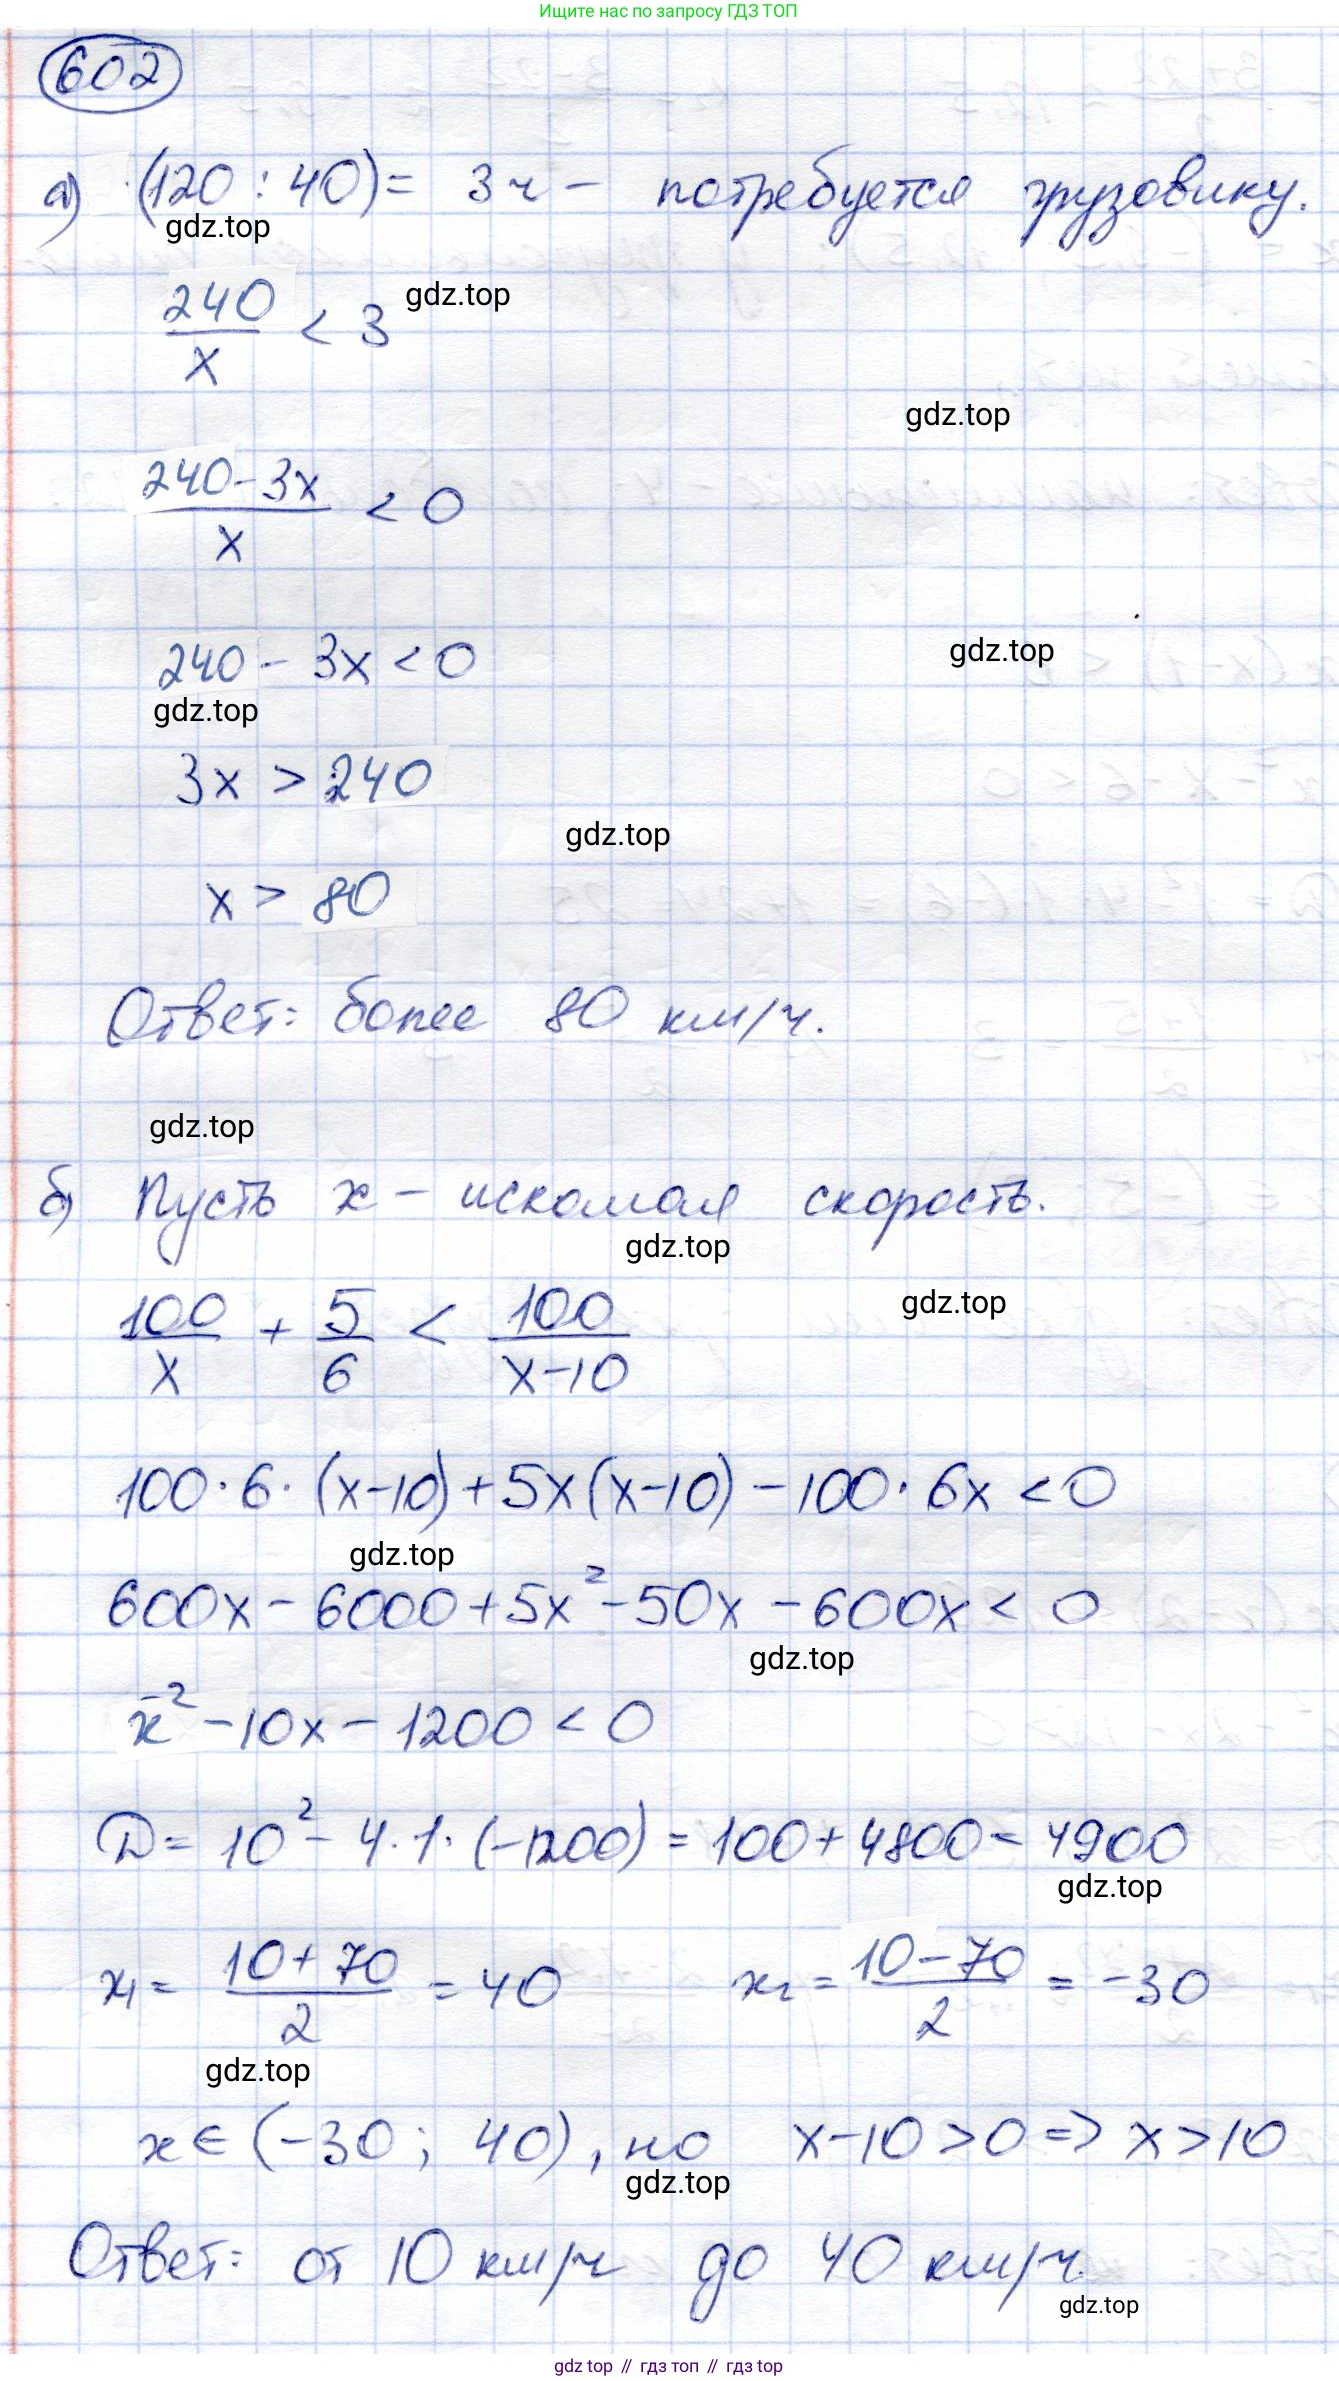 Ищите нас по запросу ГДЗ ТОП
602
а) (120 : 40) = 3 ч – потребуется грузовику.
gdz.top
240/x < 3
gdz.top
gdz.top
(240-3x)/x < 0
240 - 3x < 0
gdz.top
gdz.top
3x > 240
gdz.top
x > 80
Ответ: более 80 км/ч.
gdz.top
б) Пусть x – искомая скорость.
gdz.top
100/x + 5/6 < 100/(x-10)
gdz.top
100·6·(x-10)+5x(x-10)-100·6x<0
gdz.top
600x-6000+5x²-50x-600x<0
gdz.top
x²-10x-1200<0
D=10²-4·1·(-1200)=100+4800=4900
gdz.top
x₁=(10+70)/2=40 x₂=(10-70)/2=-30
gdz.top
x∈(-30; 40), но x-10>0=>x>10
gdz.top
Ответ: от 10 км/ч до 40 км/ч.
gdz.top
gdz top // гдз топ // гдз top